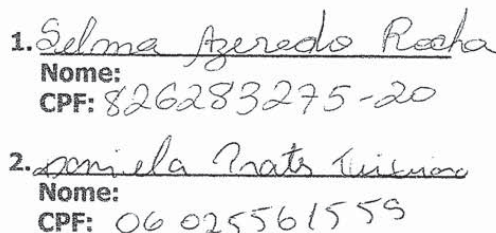 1. Selma Azeredo Rocha
Nome:
CPF: 826283275-20
2. Daniela Prates
Nome:
CPF: 06025561559